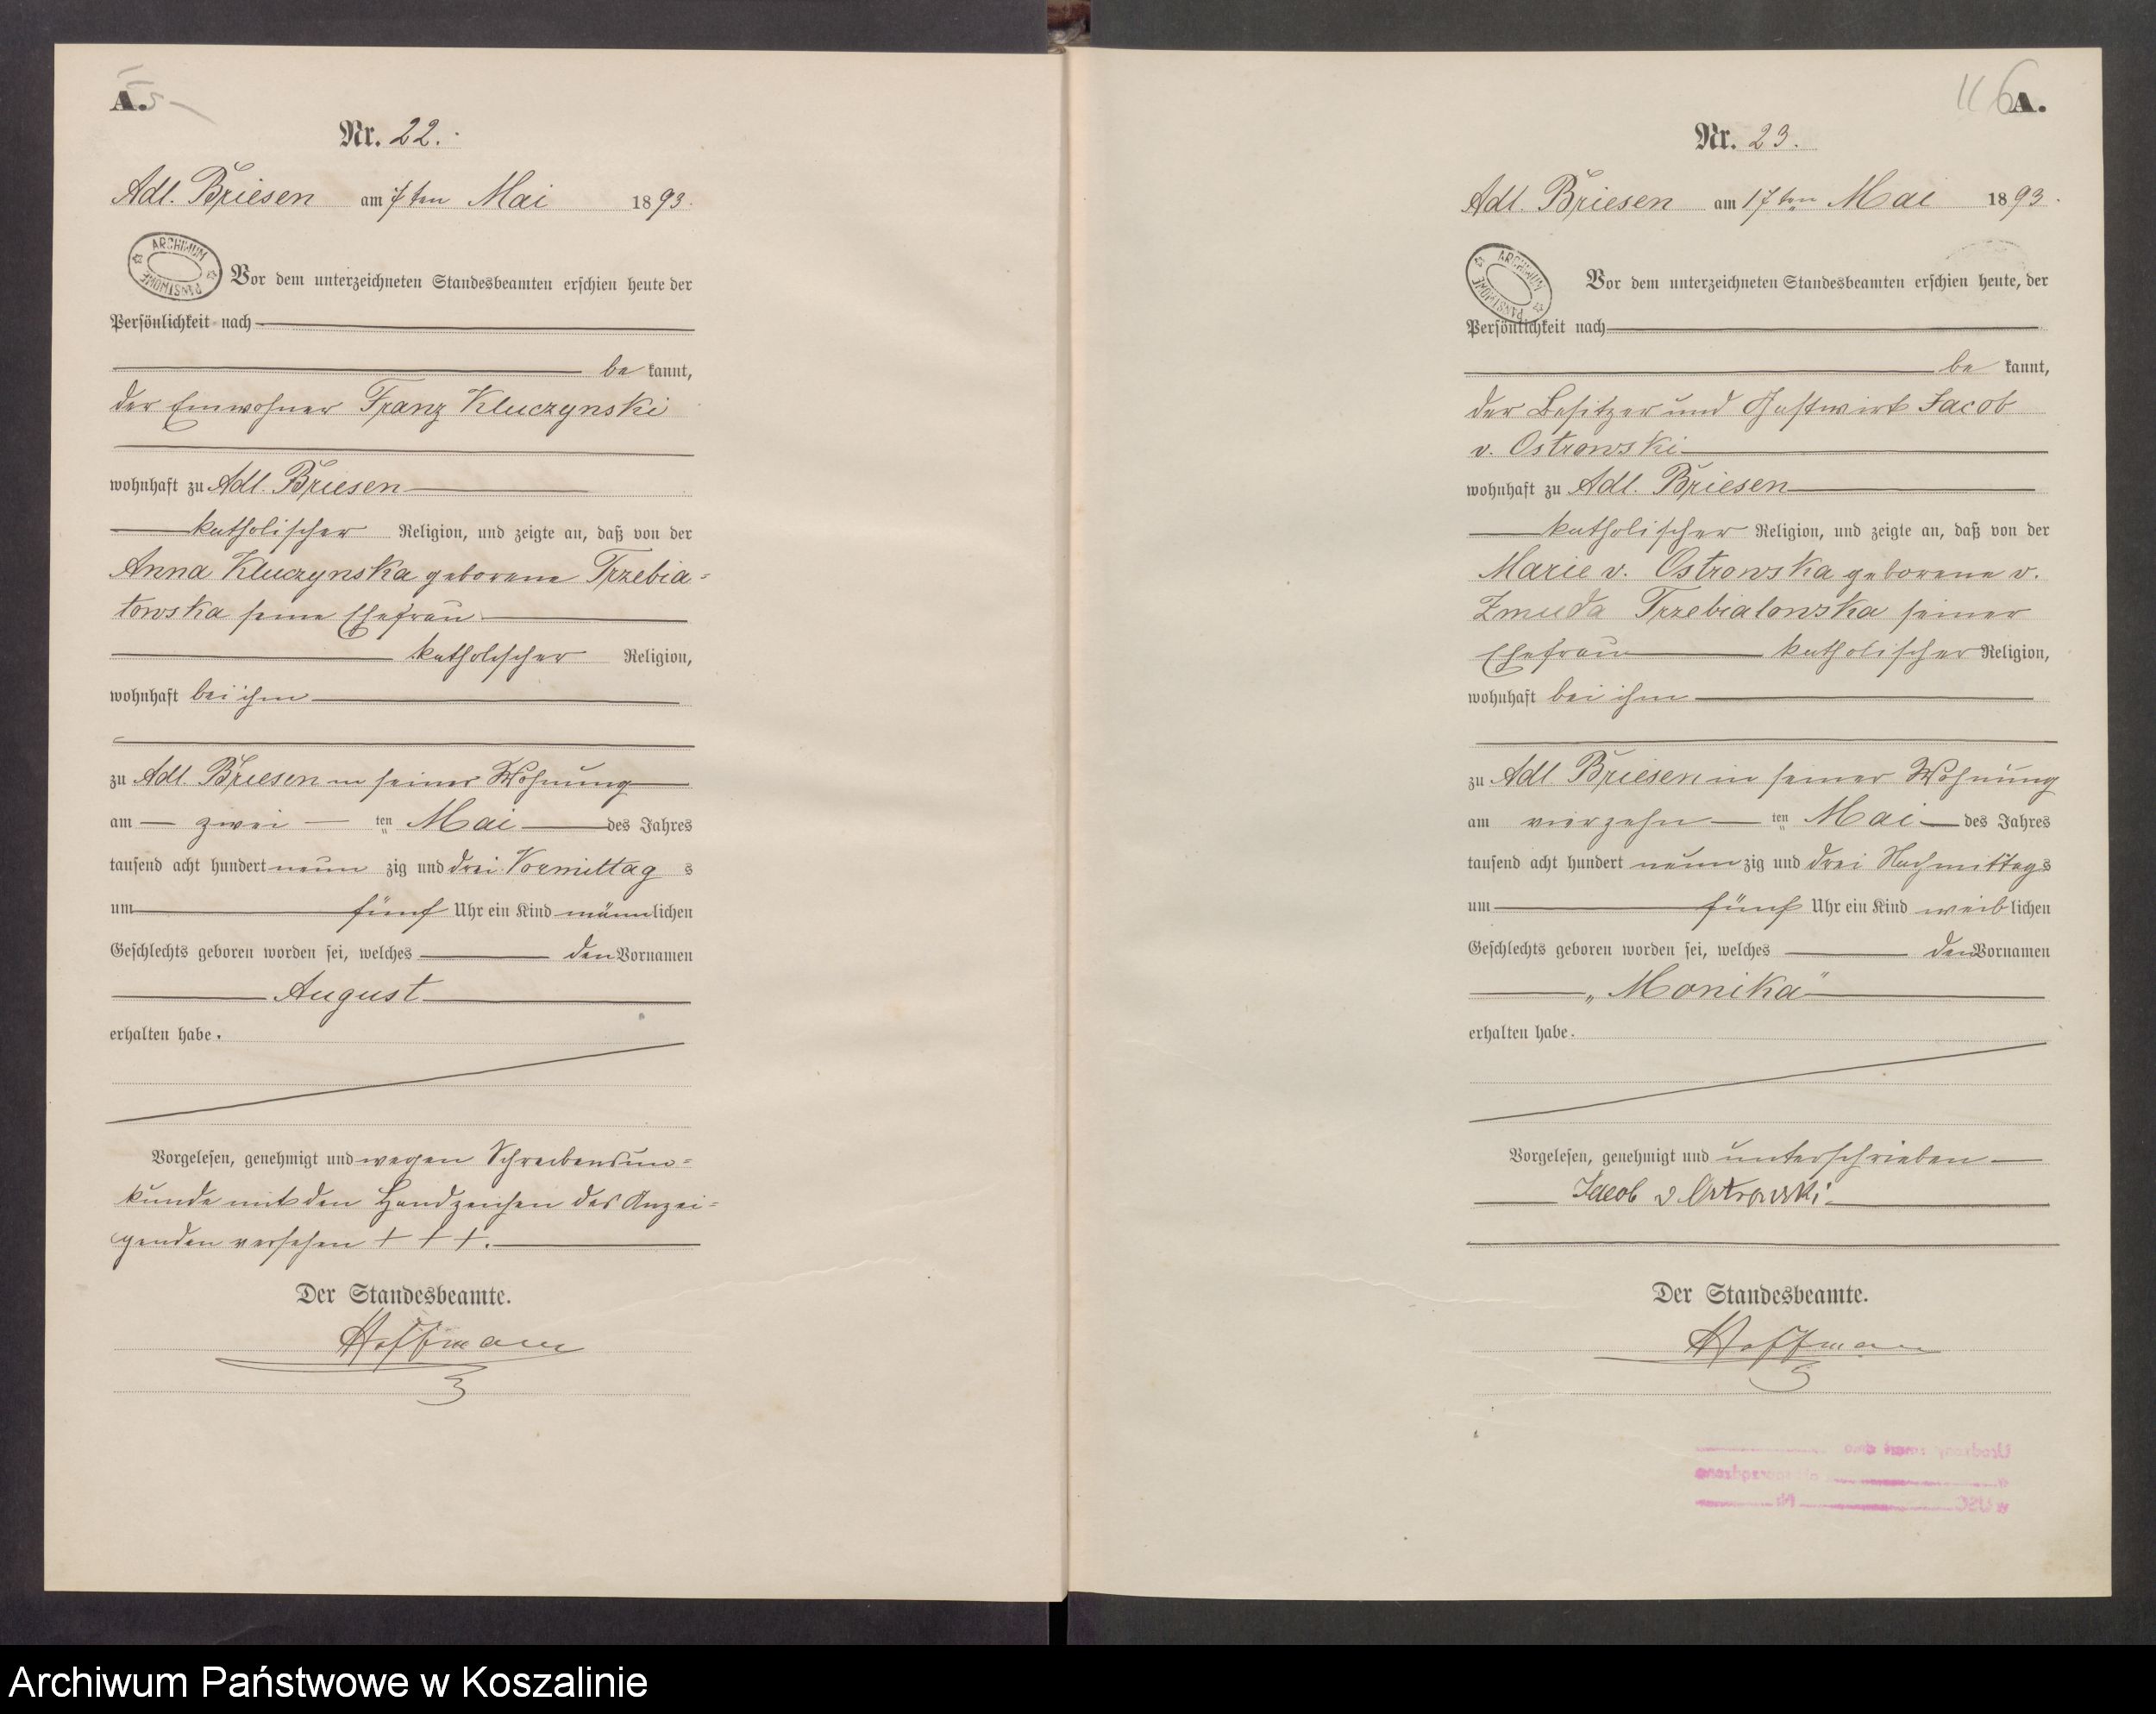 A.
Nr. 22.
Adl. Briesen am 7ten Mai 1893.
ARCHIWUM PAŃSTWOWE
Vor dem unterzeichneten Standesbeamten erschien heute der
Persönlichkeit nach
be kannt,
der Einwohner Franz Kluczynski
wohnhaft zu Adl. Briesen
katholischer Religion, und zeigte an, daß von der
Anna Kluczynska geborene Trzebia=
towska seine Ehefrau
katholischer Religion,
wohnhaft bei ihm
zu Adl. Briesen in seiner Wohnung
am zwei ten Mai des Jahres
tausend acht hundert neun zig und drei Vormittag s
um fünf Uhr ein Kind männlichen
Geschlechts geboren worden sei, welches den Vornamen
August
erhalten habe.
Vorgelesen, genehmigt und wegen Schreibensun=
kunde mit den Handzeichen des Anzei=
genden versehen + + +.
Der Standesbeamte.
Hoffmann
116
A.
Nr. 23.
Adl. Briesen am 17ten Mai 1893.
ARCHIWUM PAŃSTWOWE
Vor dem unterzeichneten Standesbeamten erschien heute, der
Persönlichkeit nach
be kannt,
der Besitzer und Gastwirt Jacob
v. Ostrowski
wohnhaft zu Adl. Briesen
katholischer Religion, und zeigte an, daß von der
Marie v. Ostrowska geborene v.
Zmuda Trzebiatowska seiner
Ehefrau katholischer Religion,
wohnhaft bei ihm
zu Adl. Briesen in seiner Wohnung
am vierzehn ten Mai des Jahres
tausend acht hundert neun zig und drei Nachmittags
um fünf Uhr ein Kind weiblichen
Geschlechts geboren worden sei, welches den Vornamen
„Monika"
erhalten habe.
Vorgelesen, genehmigt und unterschrieben
Jacob v Ostrowski
Der Standesbeamte.
Hoffmann
Archiwum Państwowe w Koszalinie